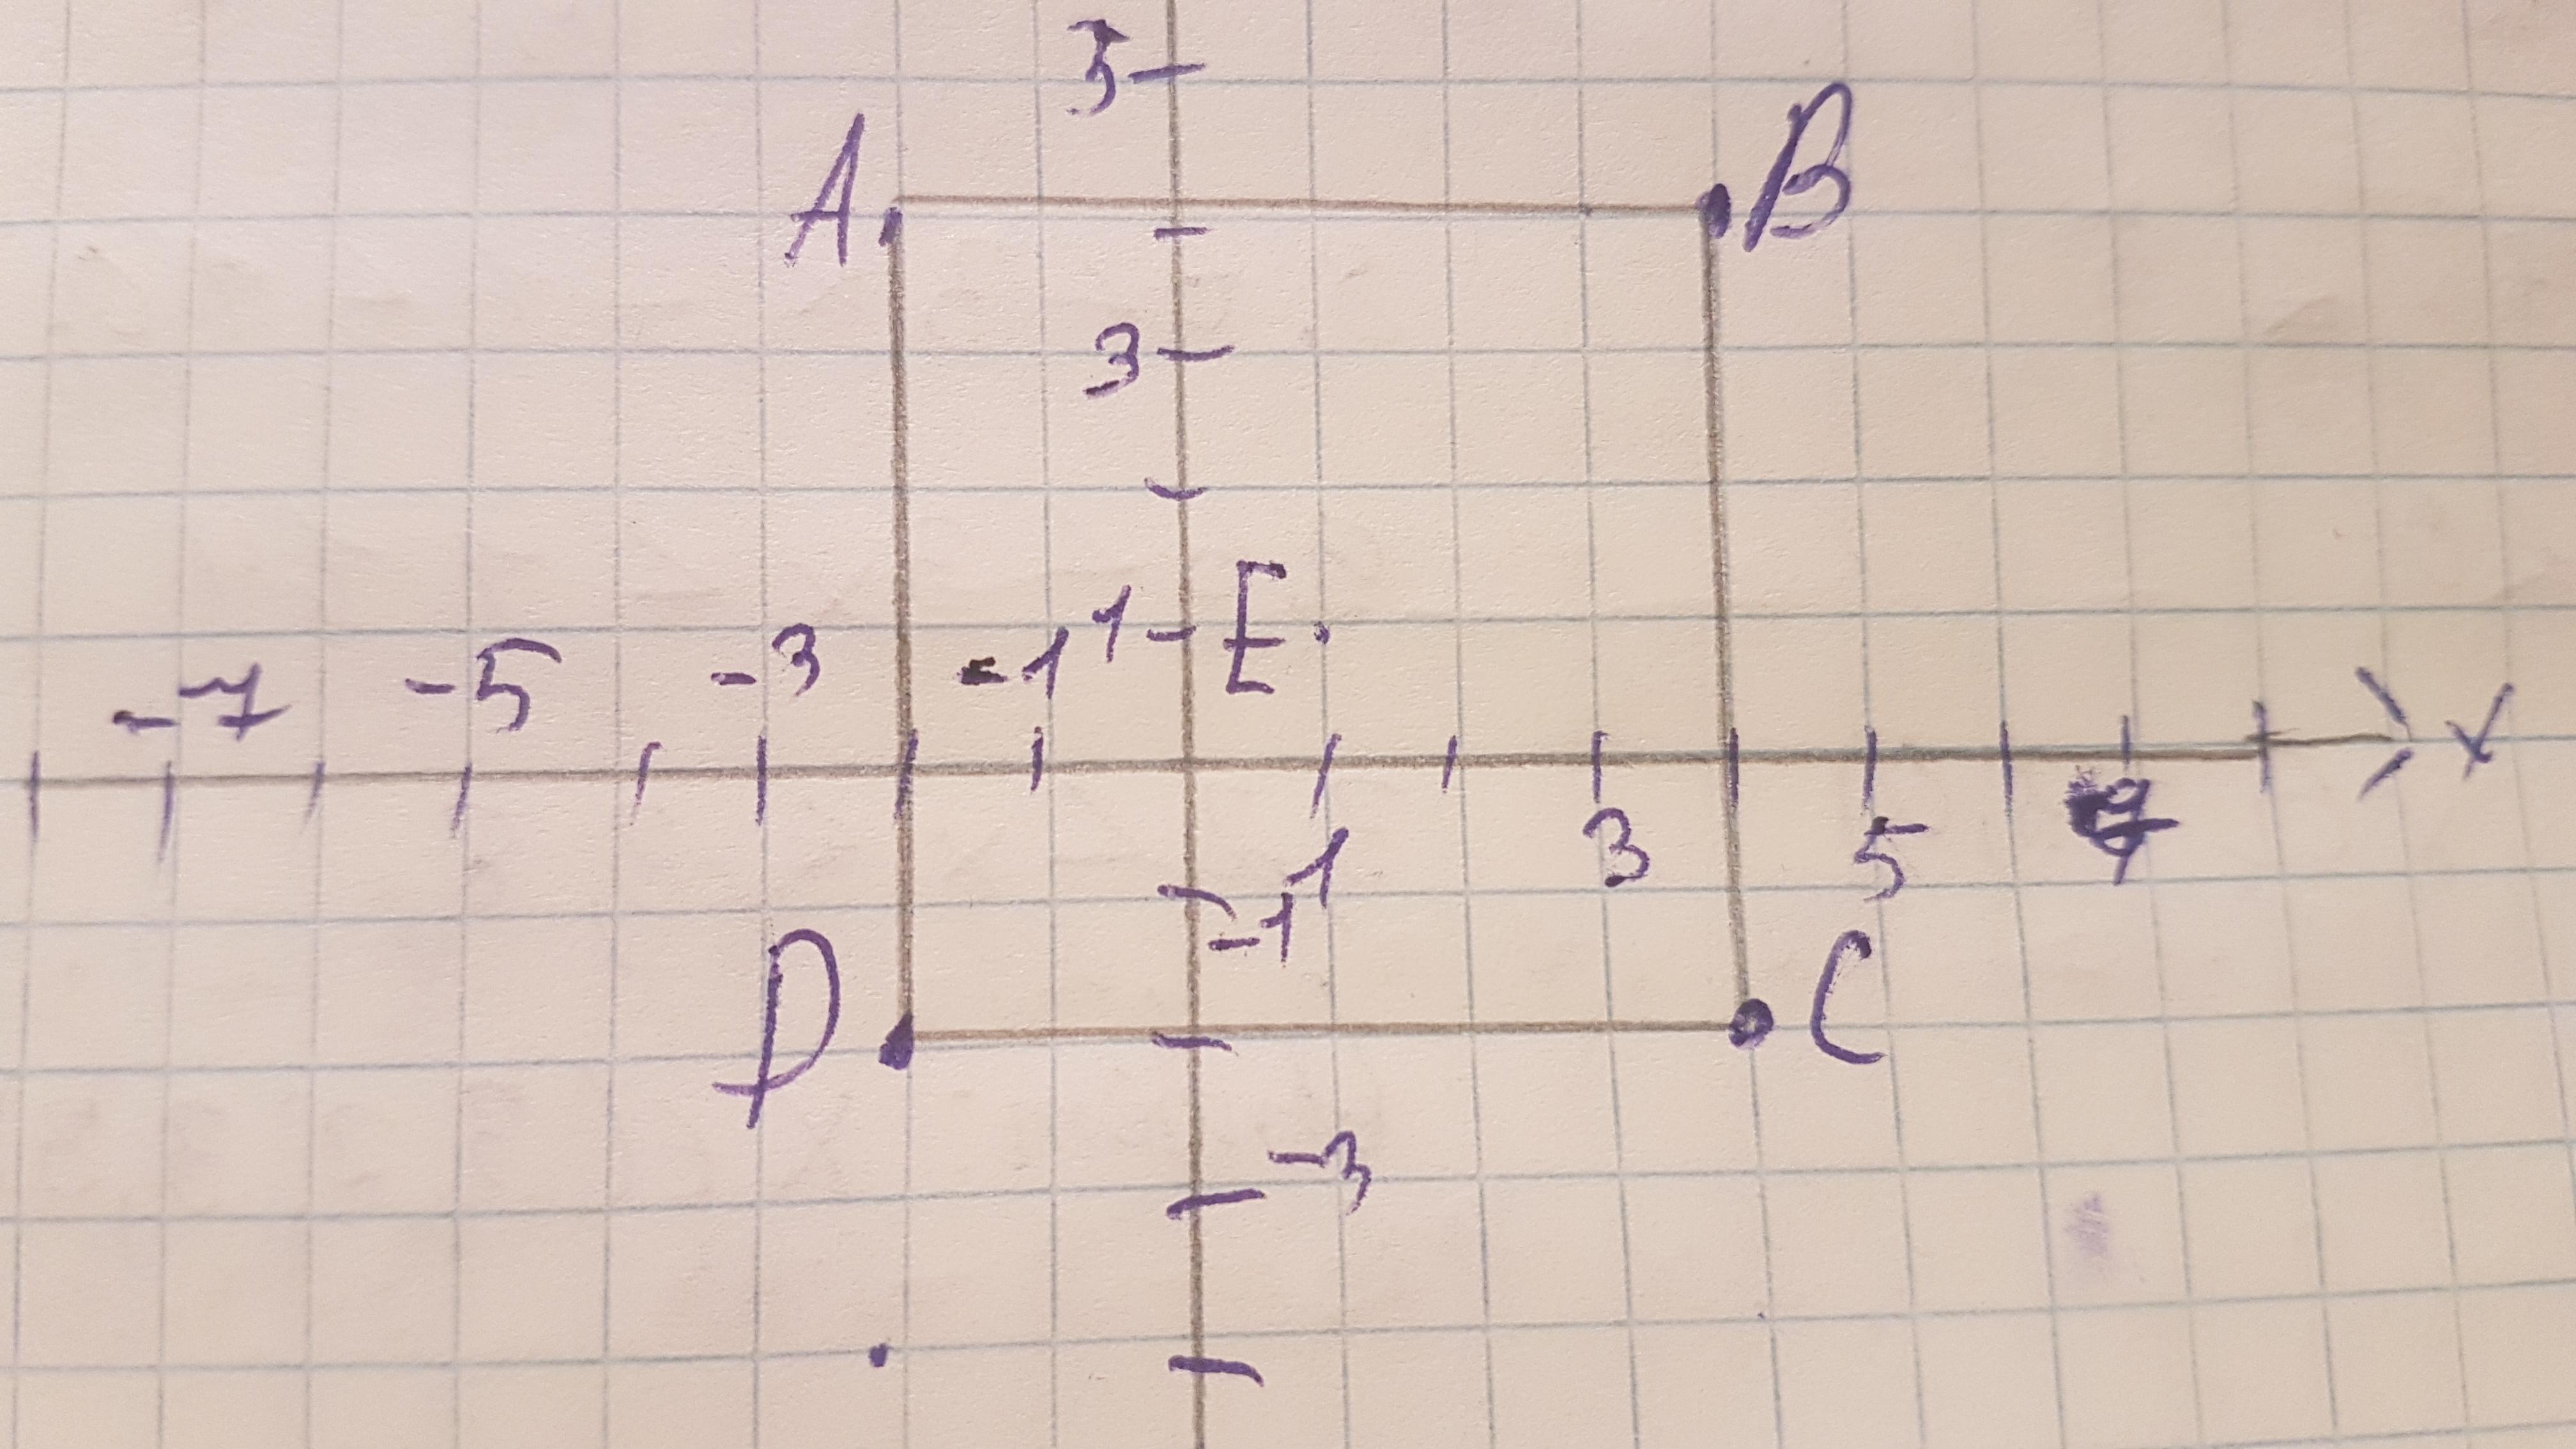 5
A B
3
1 E
-7 -5 -3 -1 x
1 3 5 7
-1
D C
-3